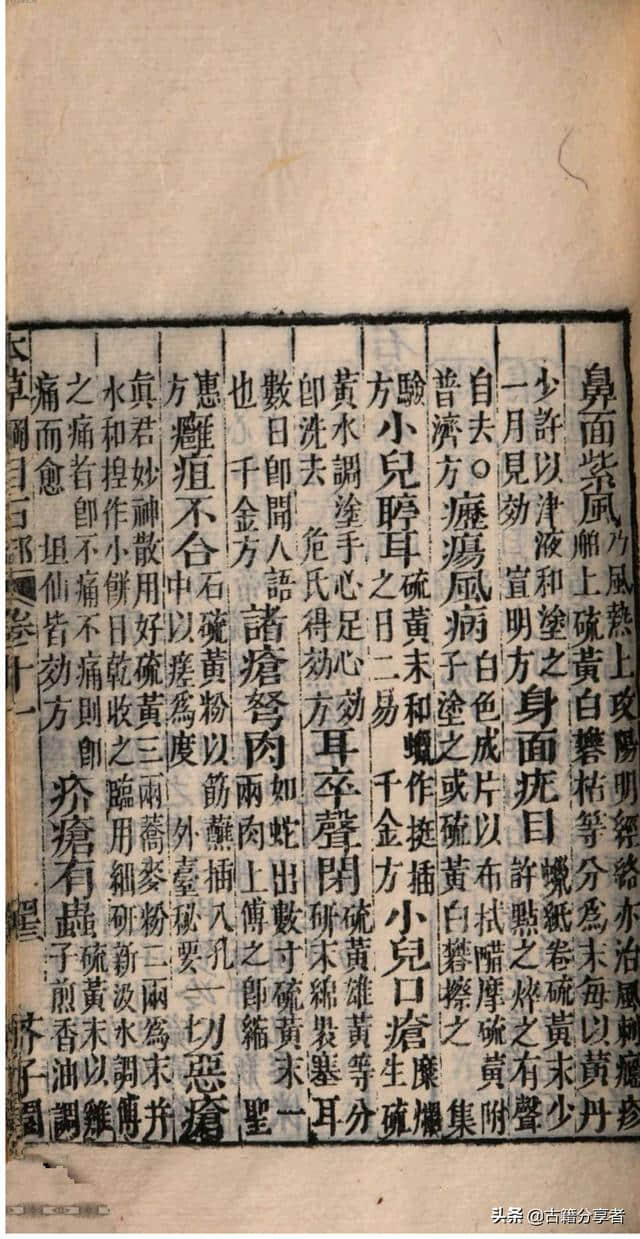 鼻面紫風乃風熱上攻陽明經絡亦治風刺癮疹舶上硫黃白礬枯等分為末每以黃丹
少許以津液和塗之一月見効 宣明方 身面疣目蠟紙卷硫黃末少許點之焠之有聲
自去○普濟方 癧瘍風病白色成片以布拭醋摩硫黃附子塗之或硫黃白礬擦之 集
驗方 小兒聤耳硫黃末和蠟作挺插之日二易 千金方 小兒口瘡糜爛生硫
黃水調塗手心足心効即洗去 危氏得効方 耳卒聾閉硫黃雄黃等分研末綿裹塞耳
數日即聞人語也 千金方 諸瘡弩肉如蛇出數寸硫黃末一兩肉上傅之即縮 聖
惠方 癰疽不合石硫黃粉以筯蘸插入孔中以瘥為度 外臺秘要 一切惡瘡
眞君妙神散用好硫黃三兩蕎麥粉二兩為末井水和揑作小餅日乾收之臨用細研新汲水調傅
之痛者即不痛不痛則即痛而愈 坦仙皆効方 疥瘡有蟲硫黃末以雞子煎香油調
本草綱目石部 卷十一 芥子園
头条 @古籍分享者